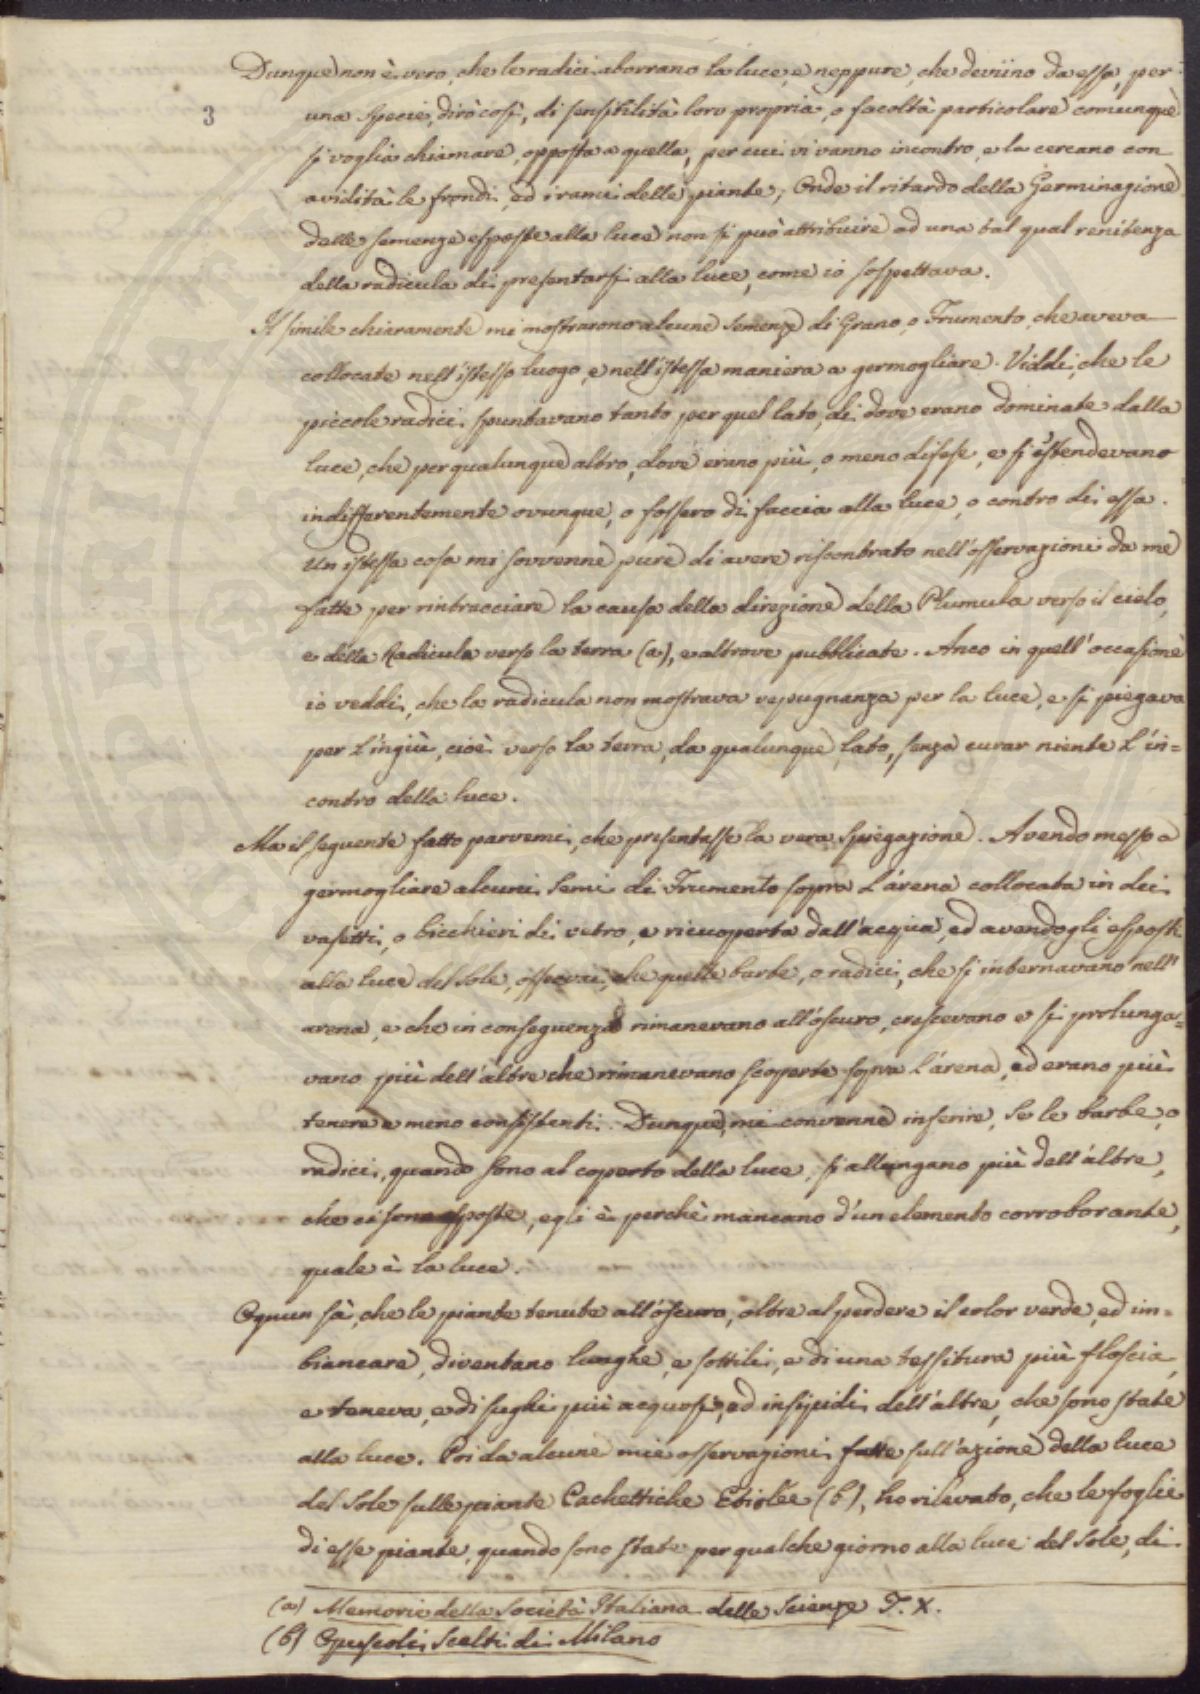 Dunque non è vero, che le radici aborrano la luce, e neppure, che deviino da essa, per
3
una specie, dirò così, di sensibilità loro propria, o facoltà particolare comunque
si voglia chiamare, opposta a quella, per cui vi vanno incontro, e la cercano con
avidità le frondi, ed i rami delle piante; Onde il ritardo della Germinazione
delle semenze esposte alla luce non si può attribuire ad una tal qual renitenza
della radicula di presentarsi alla luce, come io sospettava.
Il simile chiaramente mi mostrarono alcune semenze di Grano, o Frumento, che aveva
collocate nell'istesso luogo, e nell'istessa maniera a germogliare. Viddi, che le
piccole radici spuntavano tanto per quel lato, di dove erano dominate dalla
luce, che per qualunque altro, dove erano più, o meno difese, e si estendevano
indifferentemente ovunque, o fossero di faccia alla luce, o contro di essa.
Un istessa cosa mi sovvenne pure di avere riscontrato nell'osservazioni da me
fatte per rintracciare la causa della direzione della Plumula verso il cielo,
e della Radicula verso la terra (a), e altrove pubblicate. Anco in quell'occasione
io veddi, che la radicula non mostrava repugnanza per la luce, e si piegava
per l'ingiù, cioè verso la terra, da qualunque lato, senza curar niente l'in=
contro della luce.
Ma il seguente fatto parvemi, che presentasse la vera spiegazione. Avendo messo a
germogliare alcuni semi di Frumento sopra l'arena collocata in dei
vasetti, o bicchieri di vetro, e ricuoperta dall'acqua, ed avendogli esposti
alla luce del Sole, osservai, che quelle barbe, o radici, che si internavano nell'
arena, e che in conseguenza rimanevano all'oscuro, crescevano e si prolunga=
vano più dell'altre che rimanevano scoperte sopra l'arena, ed erano più
tenere e meno consistenti. Dunque, mi convenne inferire, se le barbe, o
radici, quando sono al coperto della luce, si allungano più dell'altre,
che ci sono esposte, egli è perchè mancano d'un elemento corroborante,
quale è la luce.
Ognun sà, che le piante tenute all'oscuro, oltre al perdere il color verde, ed im=
biancare, diventano lunghe, e sottili, e di una tessitura più floscia,
e tenera, e di sughi più acquosi, ed insipidi dell'altre, che sono state
alla luce. Poi da alcune mie osservazioni fatte sull'azione della luce
del Sole sulle piante Cachettiche Etiolèe (b), ho rilevato, che le foglie
di esse piante, quando sono state per qualche giorno alla luce del Sole, di
(a) Memorie della Società Italiana delle Scienze T. X.
(b) Opuscoli Scelti di Milano